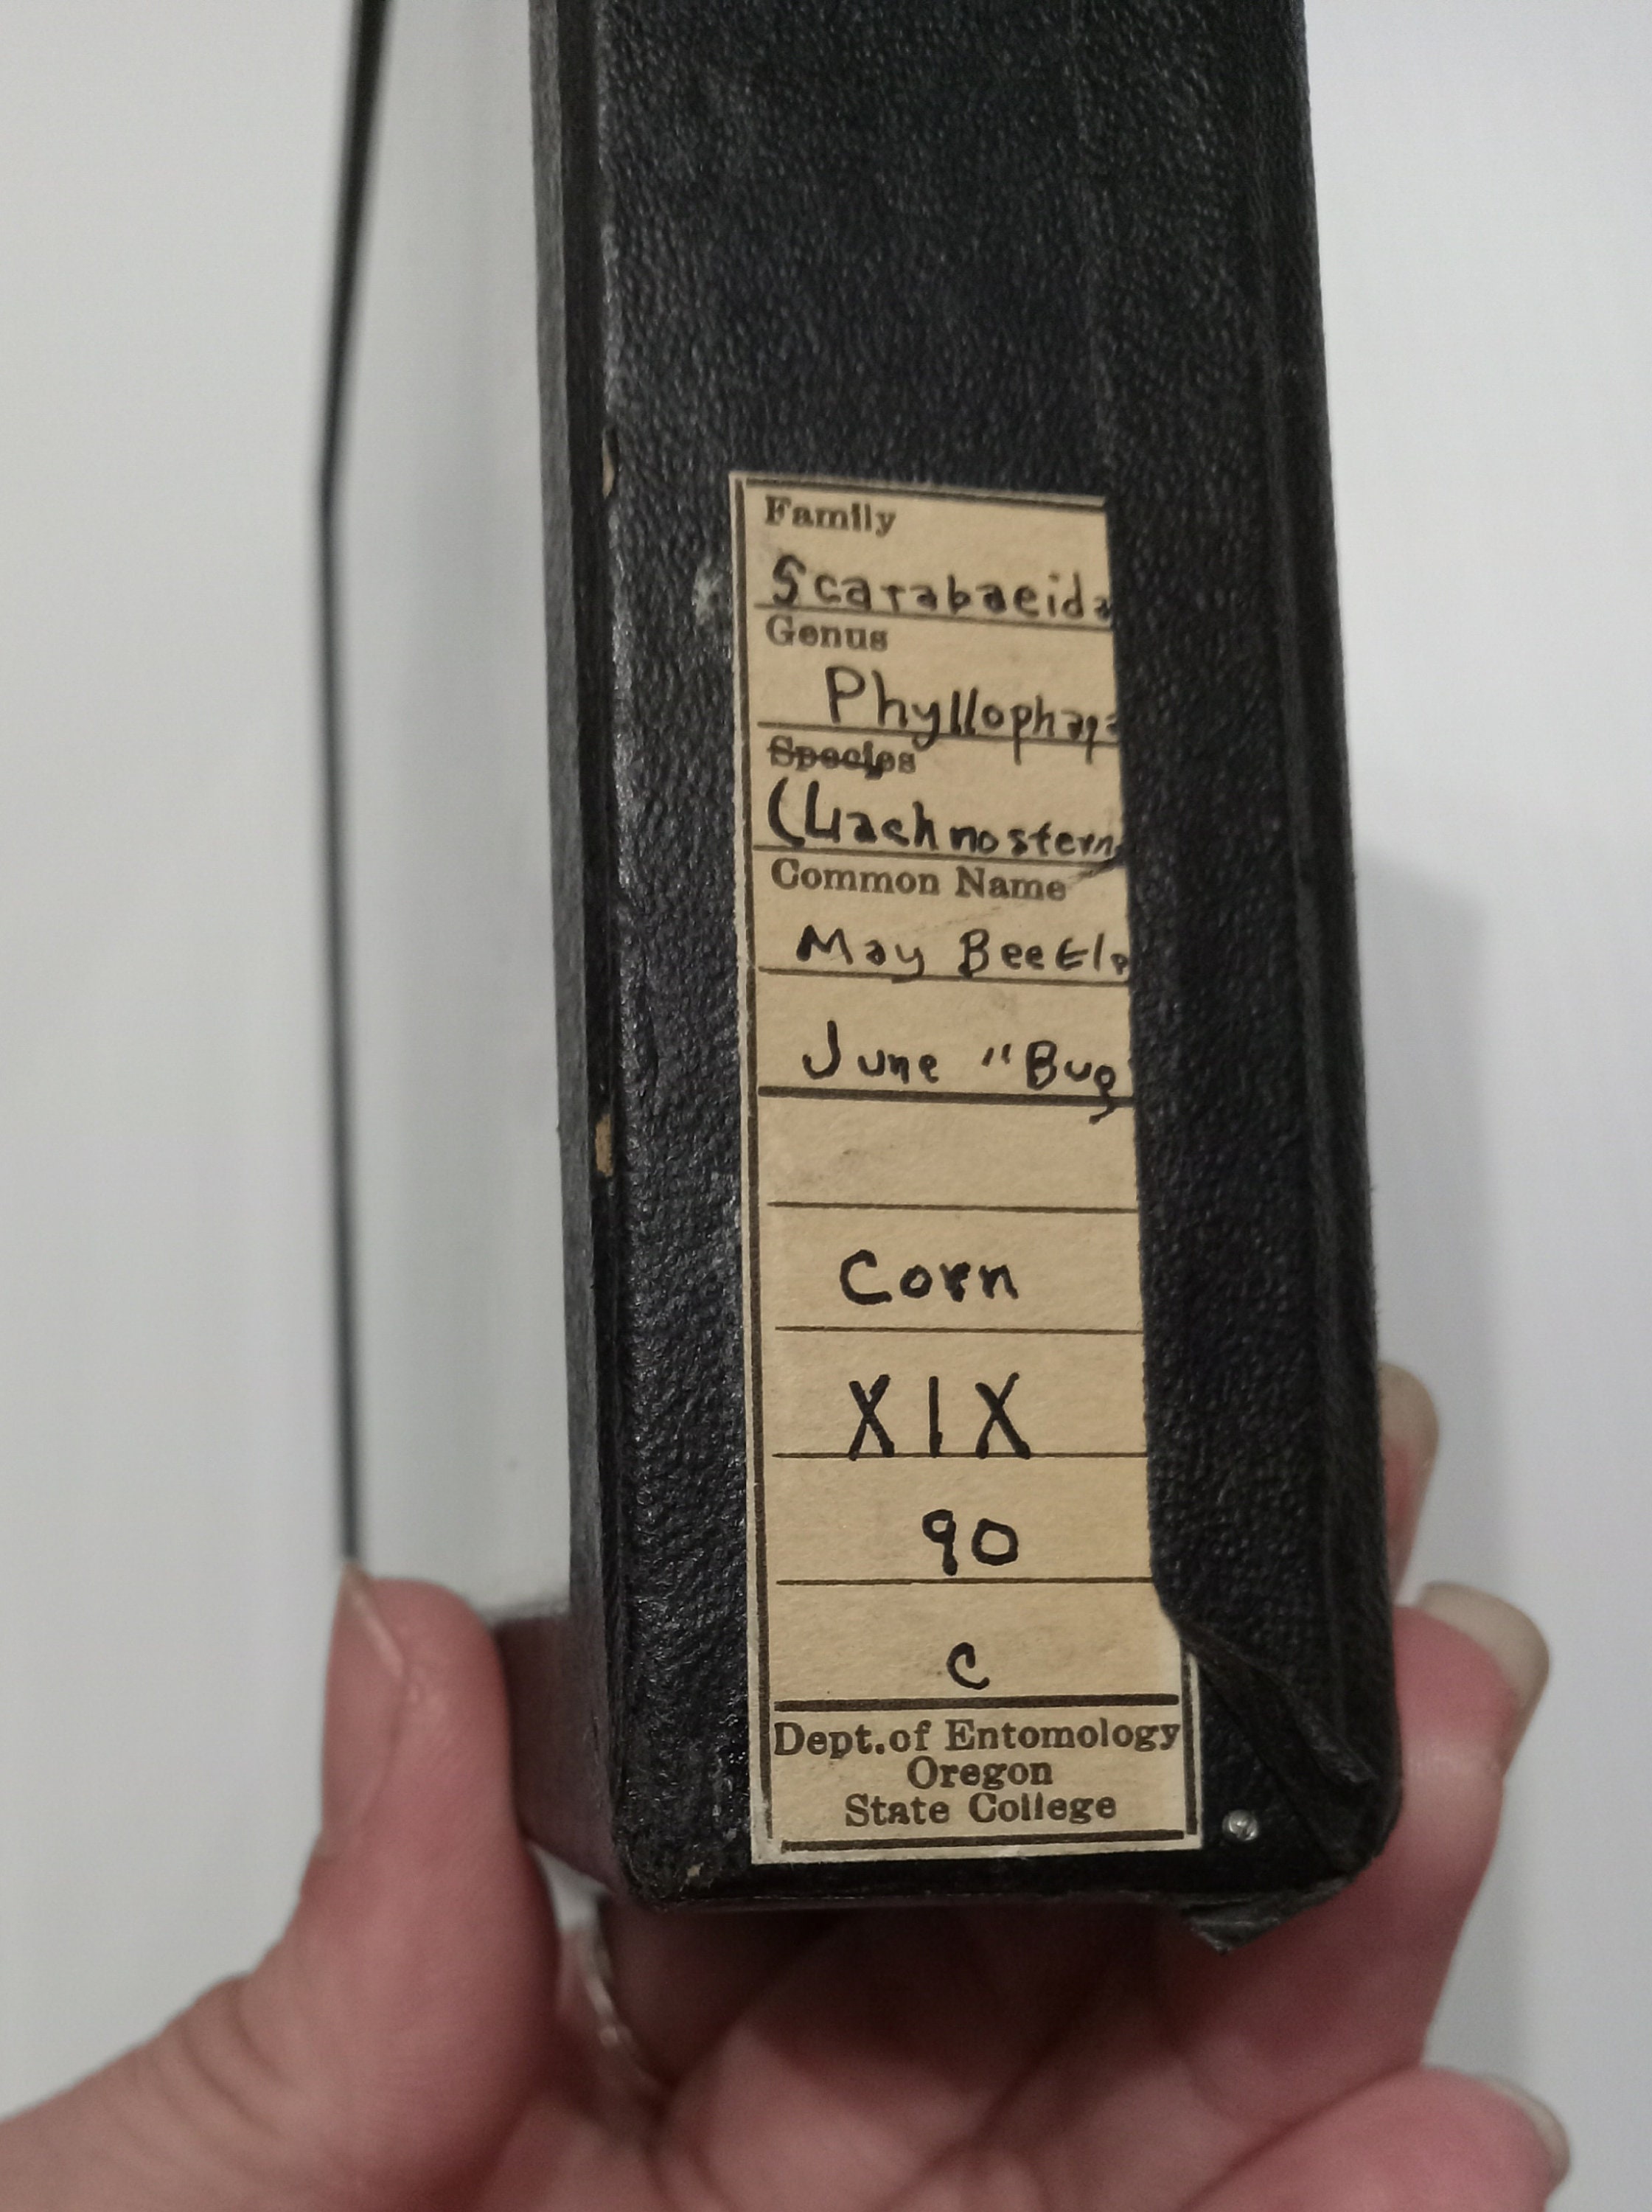 Family
Scarabaeida
Genus
Phyllophaga
Species
(Lachnostern
Common Name
May Beetle
June "Bug
Corn
XIX
90
C
Dept. of Entomology
Oregon
State College